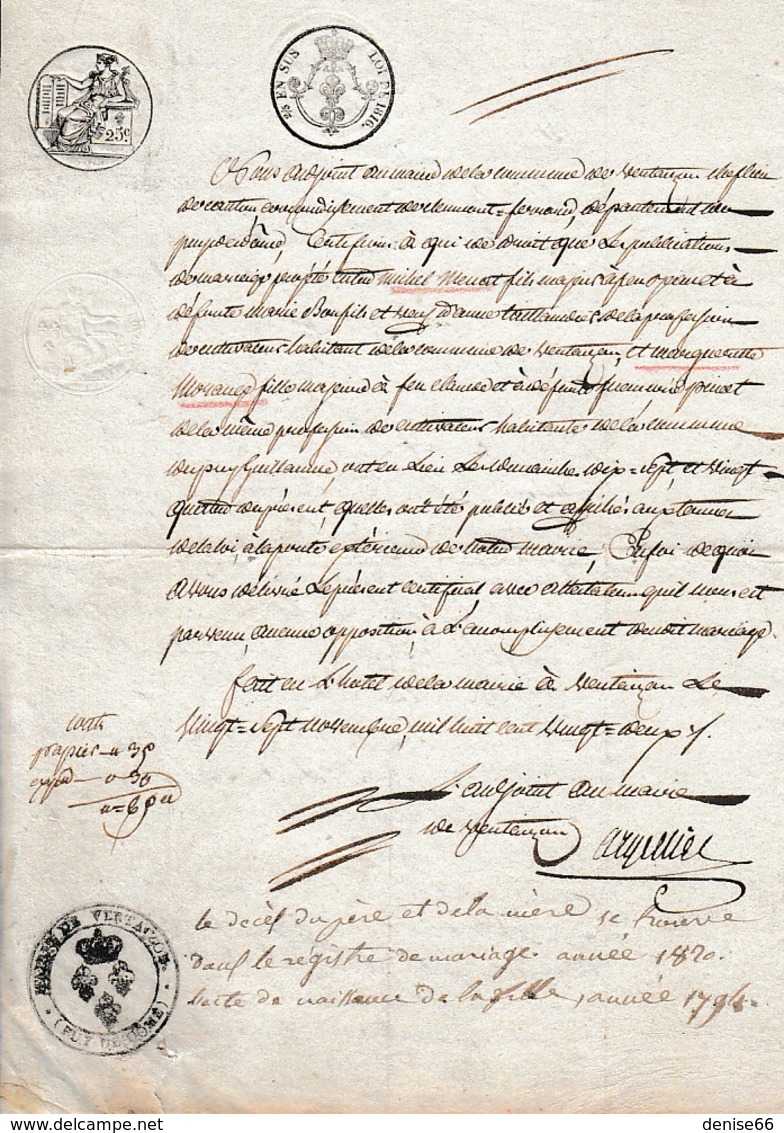 2/5 EN SUS LOI DE 1816.
25c
Nous adjoint au maire de la commune de vertaizon chef lieu
de canton, arrondissement de clermont=ferrand, département du
puy de dôme, Certifions à qui de droit que Les publications
de mariage projeté entre Mihel Menot fils majeur à feu et à
défunte Marie Bonfils et veuf d'anne de la profession
de cultivateur habitant de la commune de vertaizon, et marguerite
Morange fille majeure à feu et à défunte
de la même profession de cultivateur habitante de la commune
du puy Guillaume ont eu Lieu Les dimanches dix=Sept et vingt=
quatre du présent, quelles ont été publiés et affichés aux termes
de la loi, à la porte extérieure de notre mairie, En foi de quoi
avons délivré Le présent certificat, avec attestation qu'il nous est
parvenu, aucune opposition, à L'accomplissement du dit mariage.
fait en L'hotel de la mairie à vertaizon Le
vingt=Sept novembre, mil huit cent vingt=deux
papier — " 35
expd — " 30
L'adjoint au maire
de vertaizon
MAIRIE DE VERTAIZON
(PUY DE DOME)
le décès du père et de la mère se trouve
dans le registre de mariage année 1820.
l'acte de naissance de la fille, année 1794=
denise66